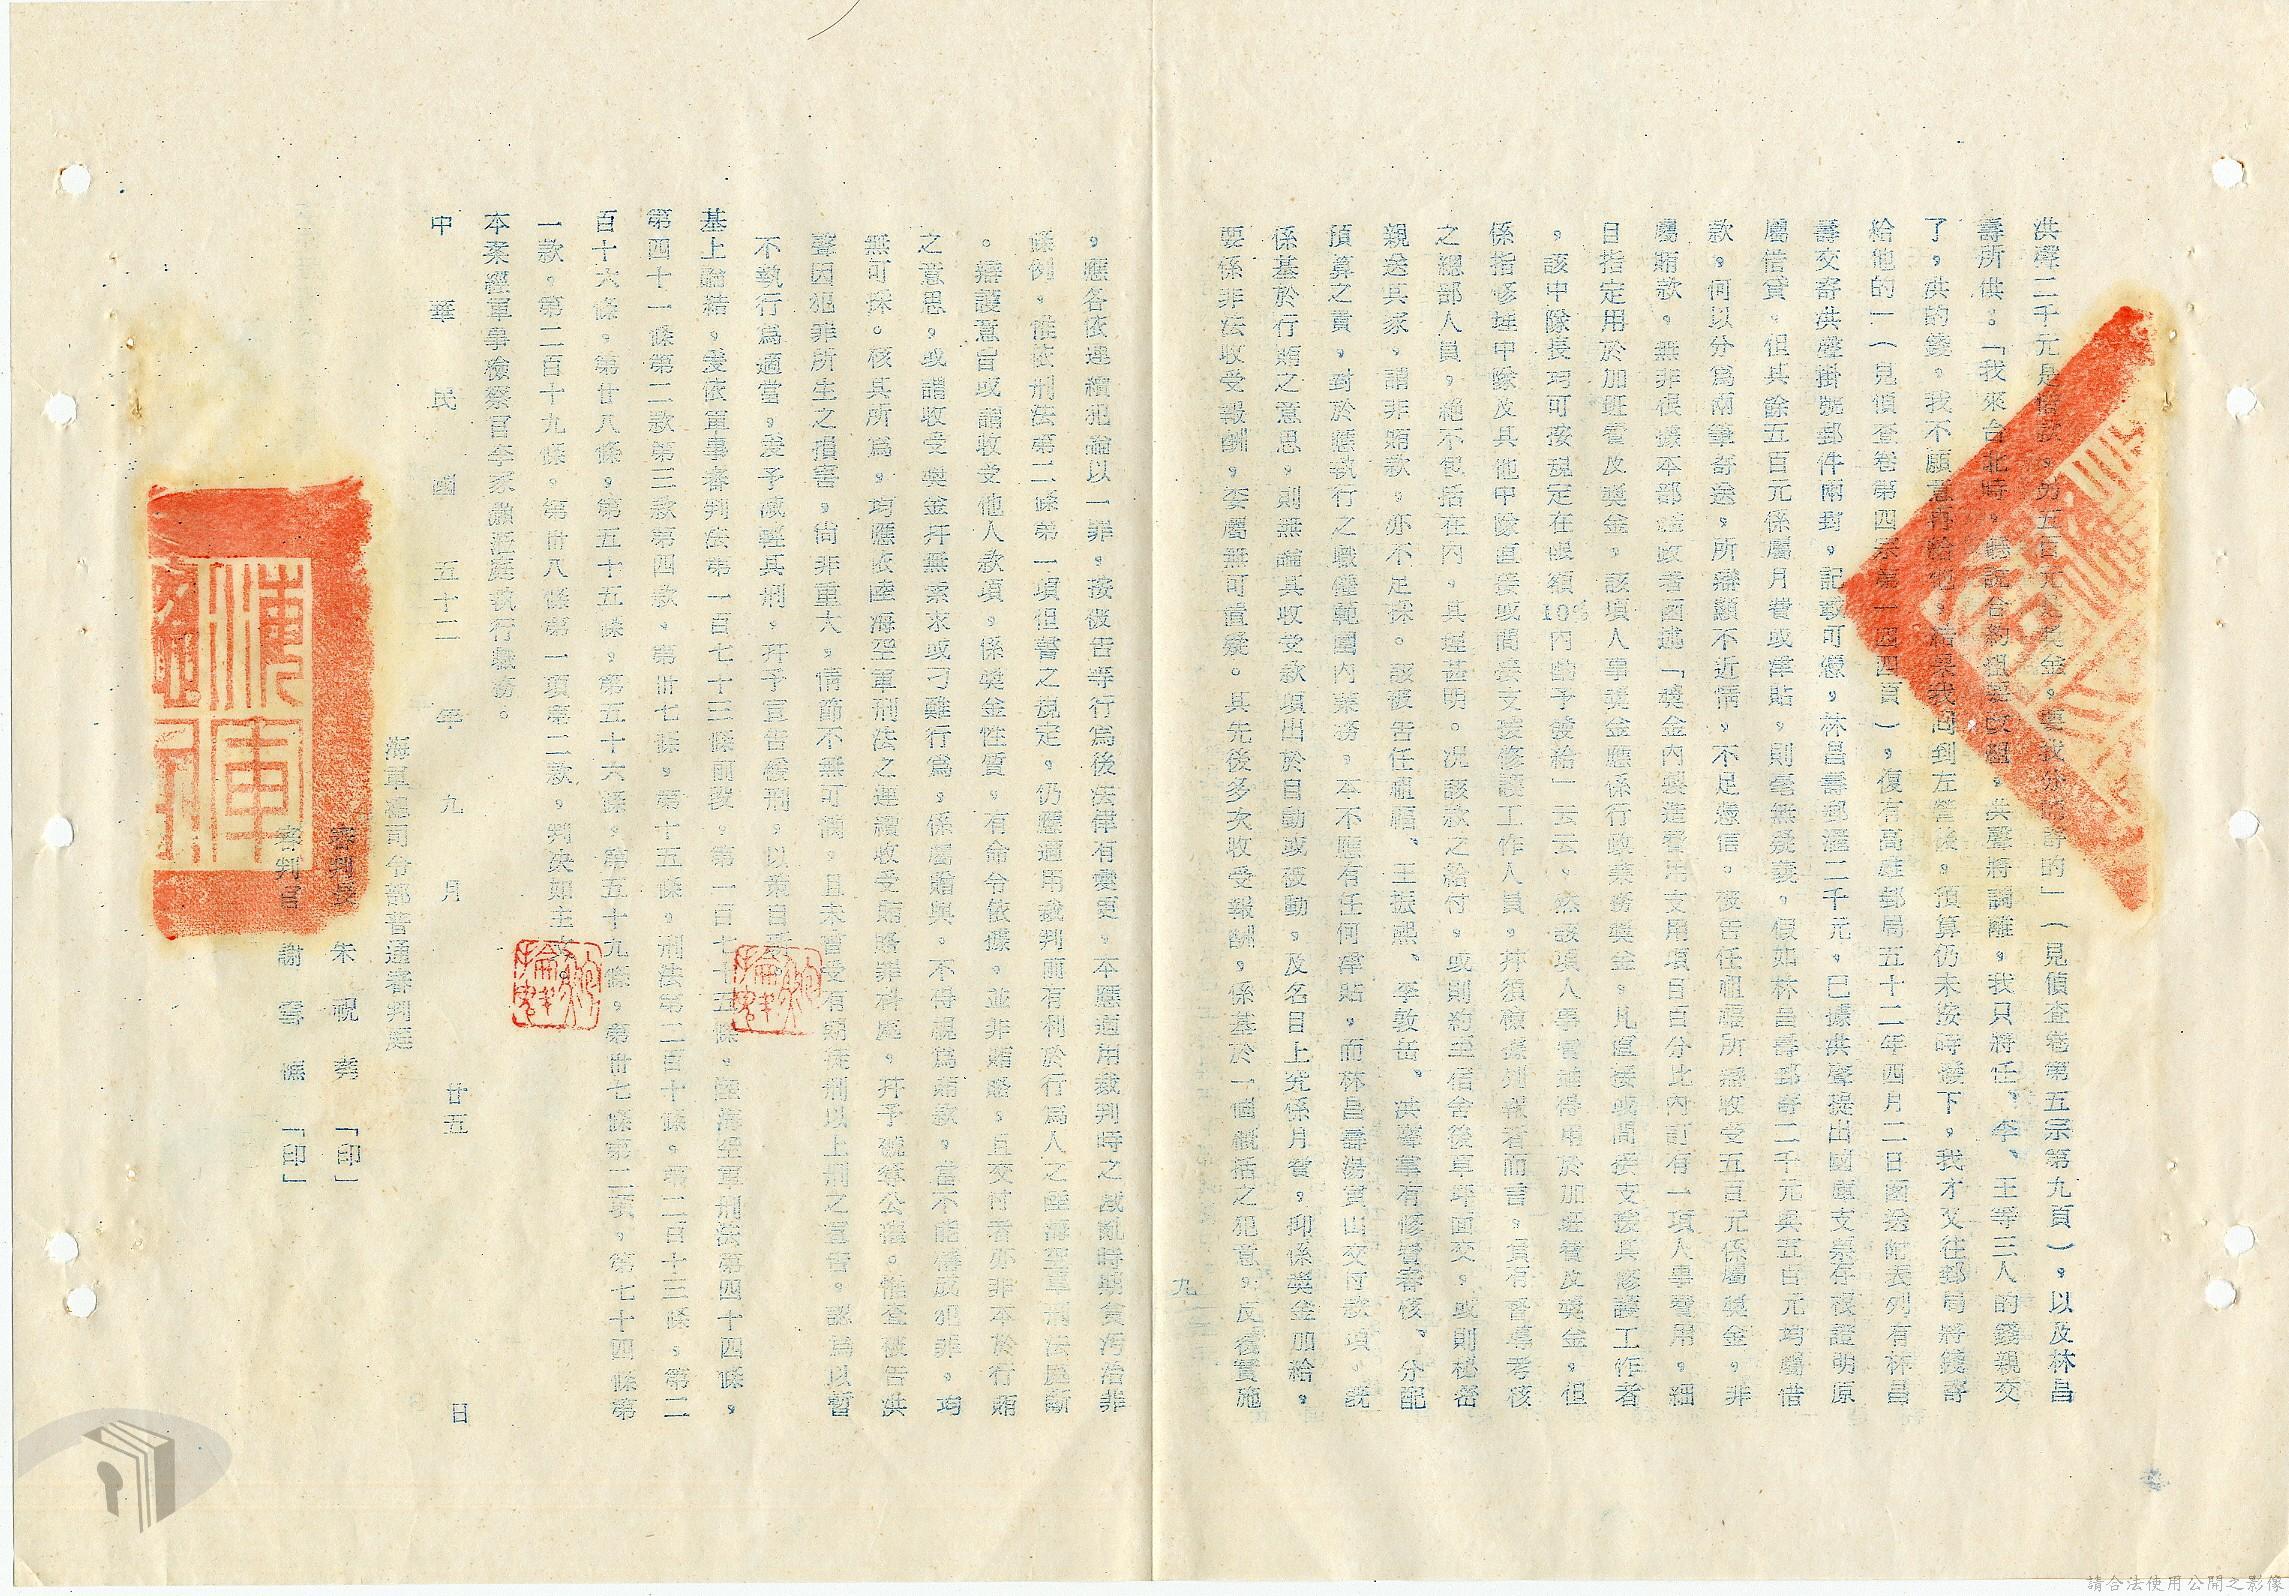 洪聲二千元是借款，另五百元是獎金，要我分幾寄的」（見偵查卷第五宗第九頁），以及林昌
壽所供：「我來台北時，聽說合約組要改組，洪聲將調離，我只將任、李、王等三人的錢親交
了，洪的錢，我不願意再給他，結果我回到左營後，預算仍未按時發下，我才又往郵局將錢寄
給他的」（見偵查卷第四宗第一四四頁），復有高雄郵局五十二年四月二日函送附表列有林昌
壽交寄洪聲掛號郵件兩封，記載可憑，林昌壽郵滙二千元，已據洪聲提出國庫支票存根證明原
屬借貸，但其餘五百元係屬月費或津貼，則毫無疑義，假如林昌壽郵寄二千元與五百元均屬借
款，何以分為兩筆寄送，所辯顯不近情，不足憑信。被告任祖福所辯收受五百元係屬獎金，非
屬賄款，無非根據本部 「獎金內製造費用支用項目百分比內訂有一項人事費用，細
目指定用於加班費及獎金，該項人事獎金應係行政業務獎金，凡直接或間接支援其修護工作者
，該中隊長均可按規定在限額10％內酌予發給」云云，然該項人事費雖得用於加班費及獎金，但
係指修理中隊及其他中隊直接或間接支援修護工作人員，并須檢據列報者而言，負有督導考核
之總部人員，絕不包括在內，其理甚明。況該款之給付，或則約至宿舍後草坪面交，或則秘密
親送其家，謂非賄款，亦不足採。該被告任祖福、王振熙、李敦岳、洪聲掌有修費審核、分配
預算之責，對於應執行之職權範圍內業務，本不應有任何津貼，而林昌壽湯寅山交付款項，既
係基於行賄之意思，則無論其收受款項出於自動或被動，及名目上究係月費，抑係獎金加給，
要係非法收受報酬，委屬無可置疑。其先後多次收受報酬，係基於一個概括之犯意，反復實施
九
，應各依連續犯論以一罪，按被告等行為後法律有變更，本應適用裁判時之戡亂時期貪污治罪
條例，惟依刑法第二條第一項但書之規定，仍應適用裁判前有利於行為人之陸海空軍刑法處斷
。辯護意旨或謂收受他人款項，係獎金性質，有命令依據，並非賄賂，且交付者亦非本於行賄
之意思，或謂收受獎金幷無索求或刁難行為，係屬贈與，不得視為賄款，當不能構成犯罪，均
無可採。核其所為，均應依陸海空軍刑法之連續收受賄賂罪科處，幷予褫奪公權。惟查被告洪
聲因犯罪所生之損害，尚非重大，情節不無可憫，且未曾受有期徒刑以上刑之宣告，認為以暫
不執行為適當，爰予減輕其刑，幷予宣告緩刑，以策自新。
基上論結，爰依軍事審判法第一百七十三條前段，第一百七十五條，陸海空軍刑法第四十四條，
第四十一條第二款第三款第四款，第卅七條，第十五條，刑法第二百十條，第二百十三條，第二
百十六條，第廿八條，第五十五條，第五十六條，第五十九條，第卅七條第二項，第七十四條第
一款，第二百十九條，第卅八條第一項第二款，判決如主文。
本案經軍事檢察官李 蒞庭執行職務。
中華民國五十二年九月廿五日
海軍總司令部普通審判庭
審判長 朱祝堯「印」
審判官 謝雲樵「印」
請合法使用公開之影像